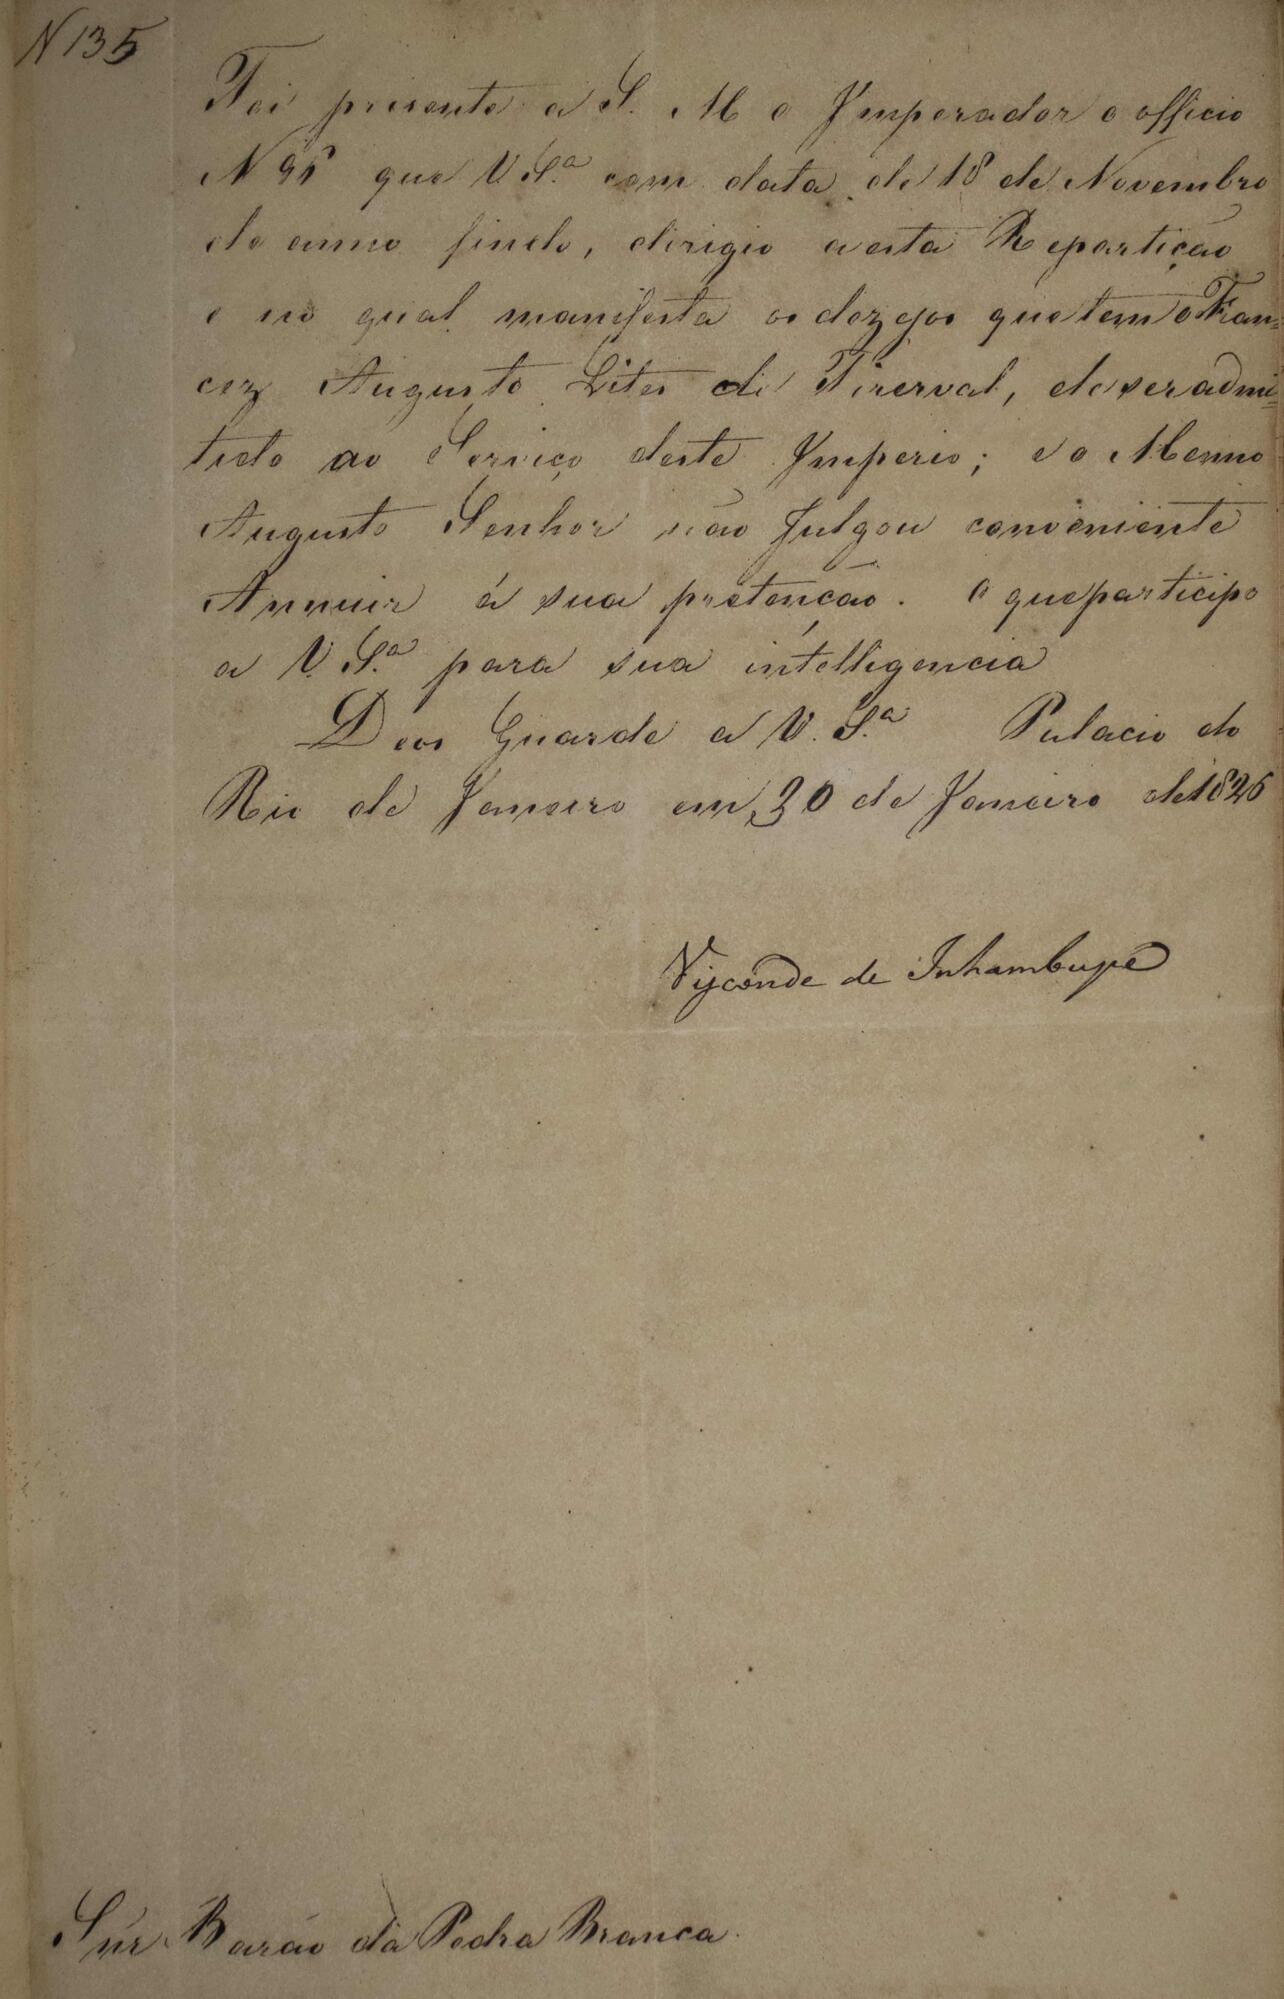 N 135
Foi presente a S. M o Imperador o officio
N 95 que V. S.ª com data de 18 de Novembro
do anno findo, dirigio a esta Repartição
e no qual manifesta os dezejos que tem o Fran=
cez Augusto de Tirerval, de ser admi=
tido ao Serviço deste Imperio; e o Mesmo
Augusto Senhor não Julgou conveniente
Annuir á sua pretenção. O que participo
a V. S.ª para sua intelligencia
Deos Guarde a V. S.ª Palacio do
Rio de Janeiro em 30 de Janeiro de 1826
Visconde de Inhambupe
Snr Barão da Pedra Branca.